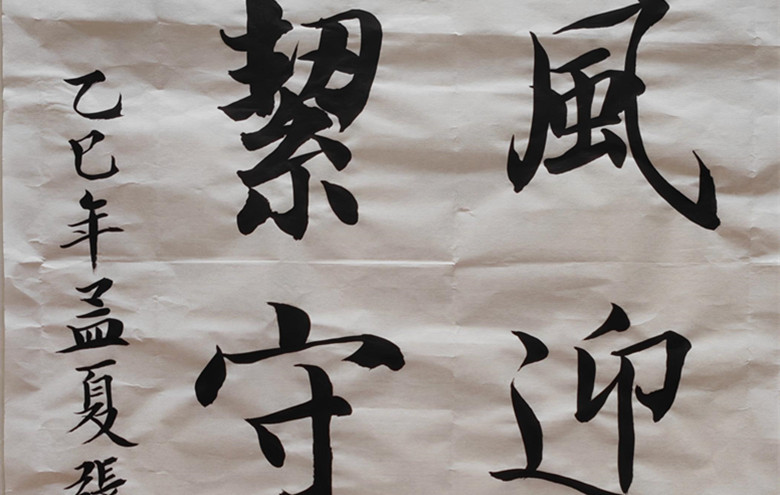 風迎
絜守
乙巳年孟夏張